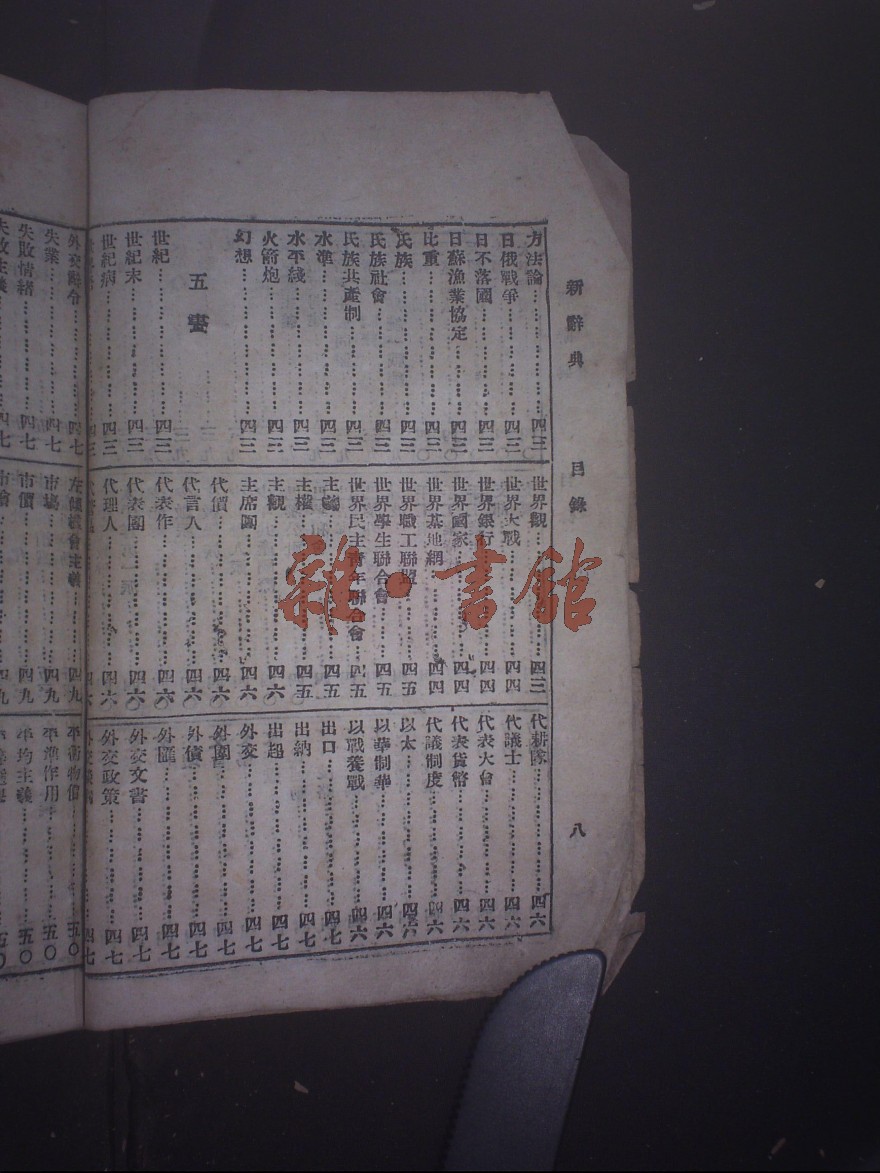 新辭典 目錄 八
方法論……四二
日俄戰爭……四二
日不落國……四二
日蘇漁業協定……四二
比重……四二
民族……四二
民族社會……四二
民族共產制……四二
水準……四二
水平綫……四二
火箭炮……四二
幻想……四二
五畫
世紀……四三
世紀末……四三
世紀病……四三
世界觀……四三
世界大戰……四四
世界銀行……四四
世界國家……四四
世界基地網……四四
世界職工聯盟……四五
世界學生聯合會……四五
世界民主青年聯合會……四五
主義……四五
主權……四五
主觀……四六
主席團……四六
代價……四六
代言人……四六
代表作……四六
代表團……四六
代理人……四六
代耕隊……四六
代議士……四六
代表大會……四六
代表貨幣……四六
代議制度……四六
以太……四六
以華制華……四六
以戰養戰……四六
出口……四七
出納……四七
出超……四七
外交……四七
外圍……四七
外債……四七
外匯……四七
外交文書……四七
外交政策……四七
外交辭令……四七
失業……四七
失敗情緒……四七
失敗主義……四七
左傾機會主義……四九
市場……四九
市價……四九
市儈……四九
平衡物價……五〇
平準作用……五〇
平均主義……五〇
雜·書館